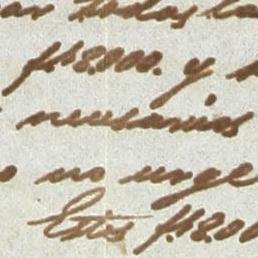 todos la
f.18.000. y
necesarios
no urge
Estos f.18.00